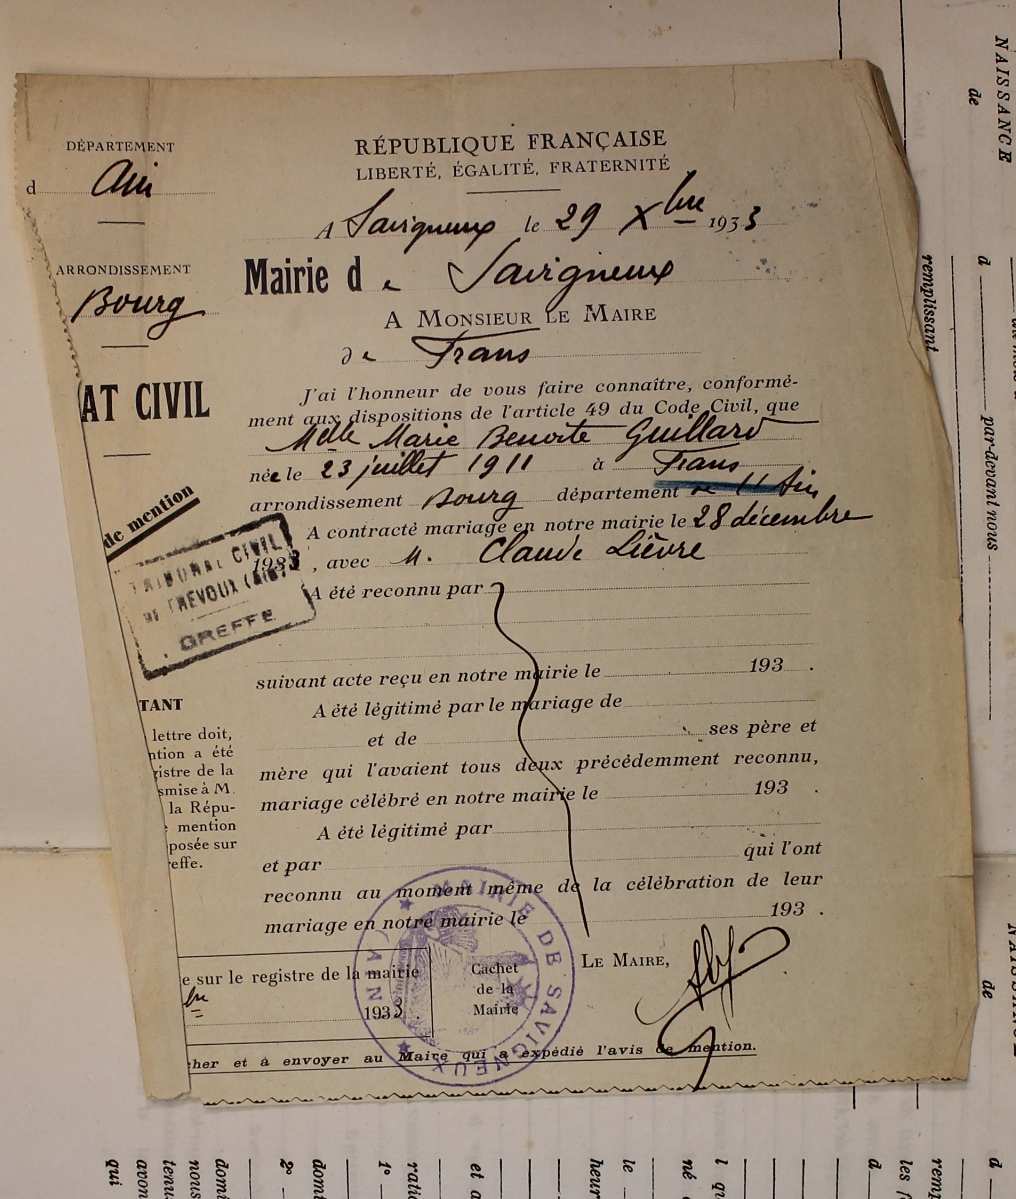 DÉPARTEMENT
d Ain
ARRONDISSEMENT
Bourg
AT CIVIL
de mention
TRIBUNAL CIVIL
DE TREVOUX (AIN)
GREFFE
TANT
lettre doit,
ntion a été
gistre de la
smise à M.
la Répu-
mention
posée sur
reffe.
RÉPUBLIQUE FRANÇAISE
LIBERTÉ, ÉGALITÉ, FRATERNITÉ
A Savigneux le 29 Xbre 1933
Mairie de Savigneux
A MONSIEUR LE MAIRE
de Frans
J'ai l'honneur de vous faire connaître, conformé-
ment aux dispositions de l'article 49 du Code Civil, que
Melle Marie Benoite Guillard
née le 23 juillet 1911 à Frans
arrondissement Bourg département de l'Ain
A contracté mariage en notre mairie le 28 décembre
1933, avec M. Claude Lièvre
A été reconnu par
suivant acte reçu en notre mairie le 193 .
A été légitimé par le mariage de
et de ses père et
mère qui l'avaient tous deux précédemment reconnu,
mariage célébré en notre mairie le 193 .
A été légitimé par
et par qui l'ont
reconnu au moment même de la célébration de leur
mariage en notre mairie le 193 .
LE MAIRE,
e sur le registre de la mairie
bre
1933 .
Cachet
de la
Mairie
MAIRIE DE SAVIGNEUX
(AIN)
cher et à envoyer au Maire qui a expédié l'avis de mention.
NAISSANCE
de
remplissant
d
par-devant nous
NAISSANCE
de
qui
avon
tenu
nous
domi
2°
domt
1°
rati
et a
heur
le
né
l qu
d
les
rem
d